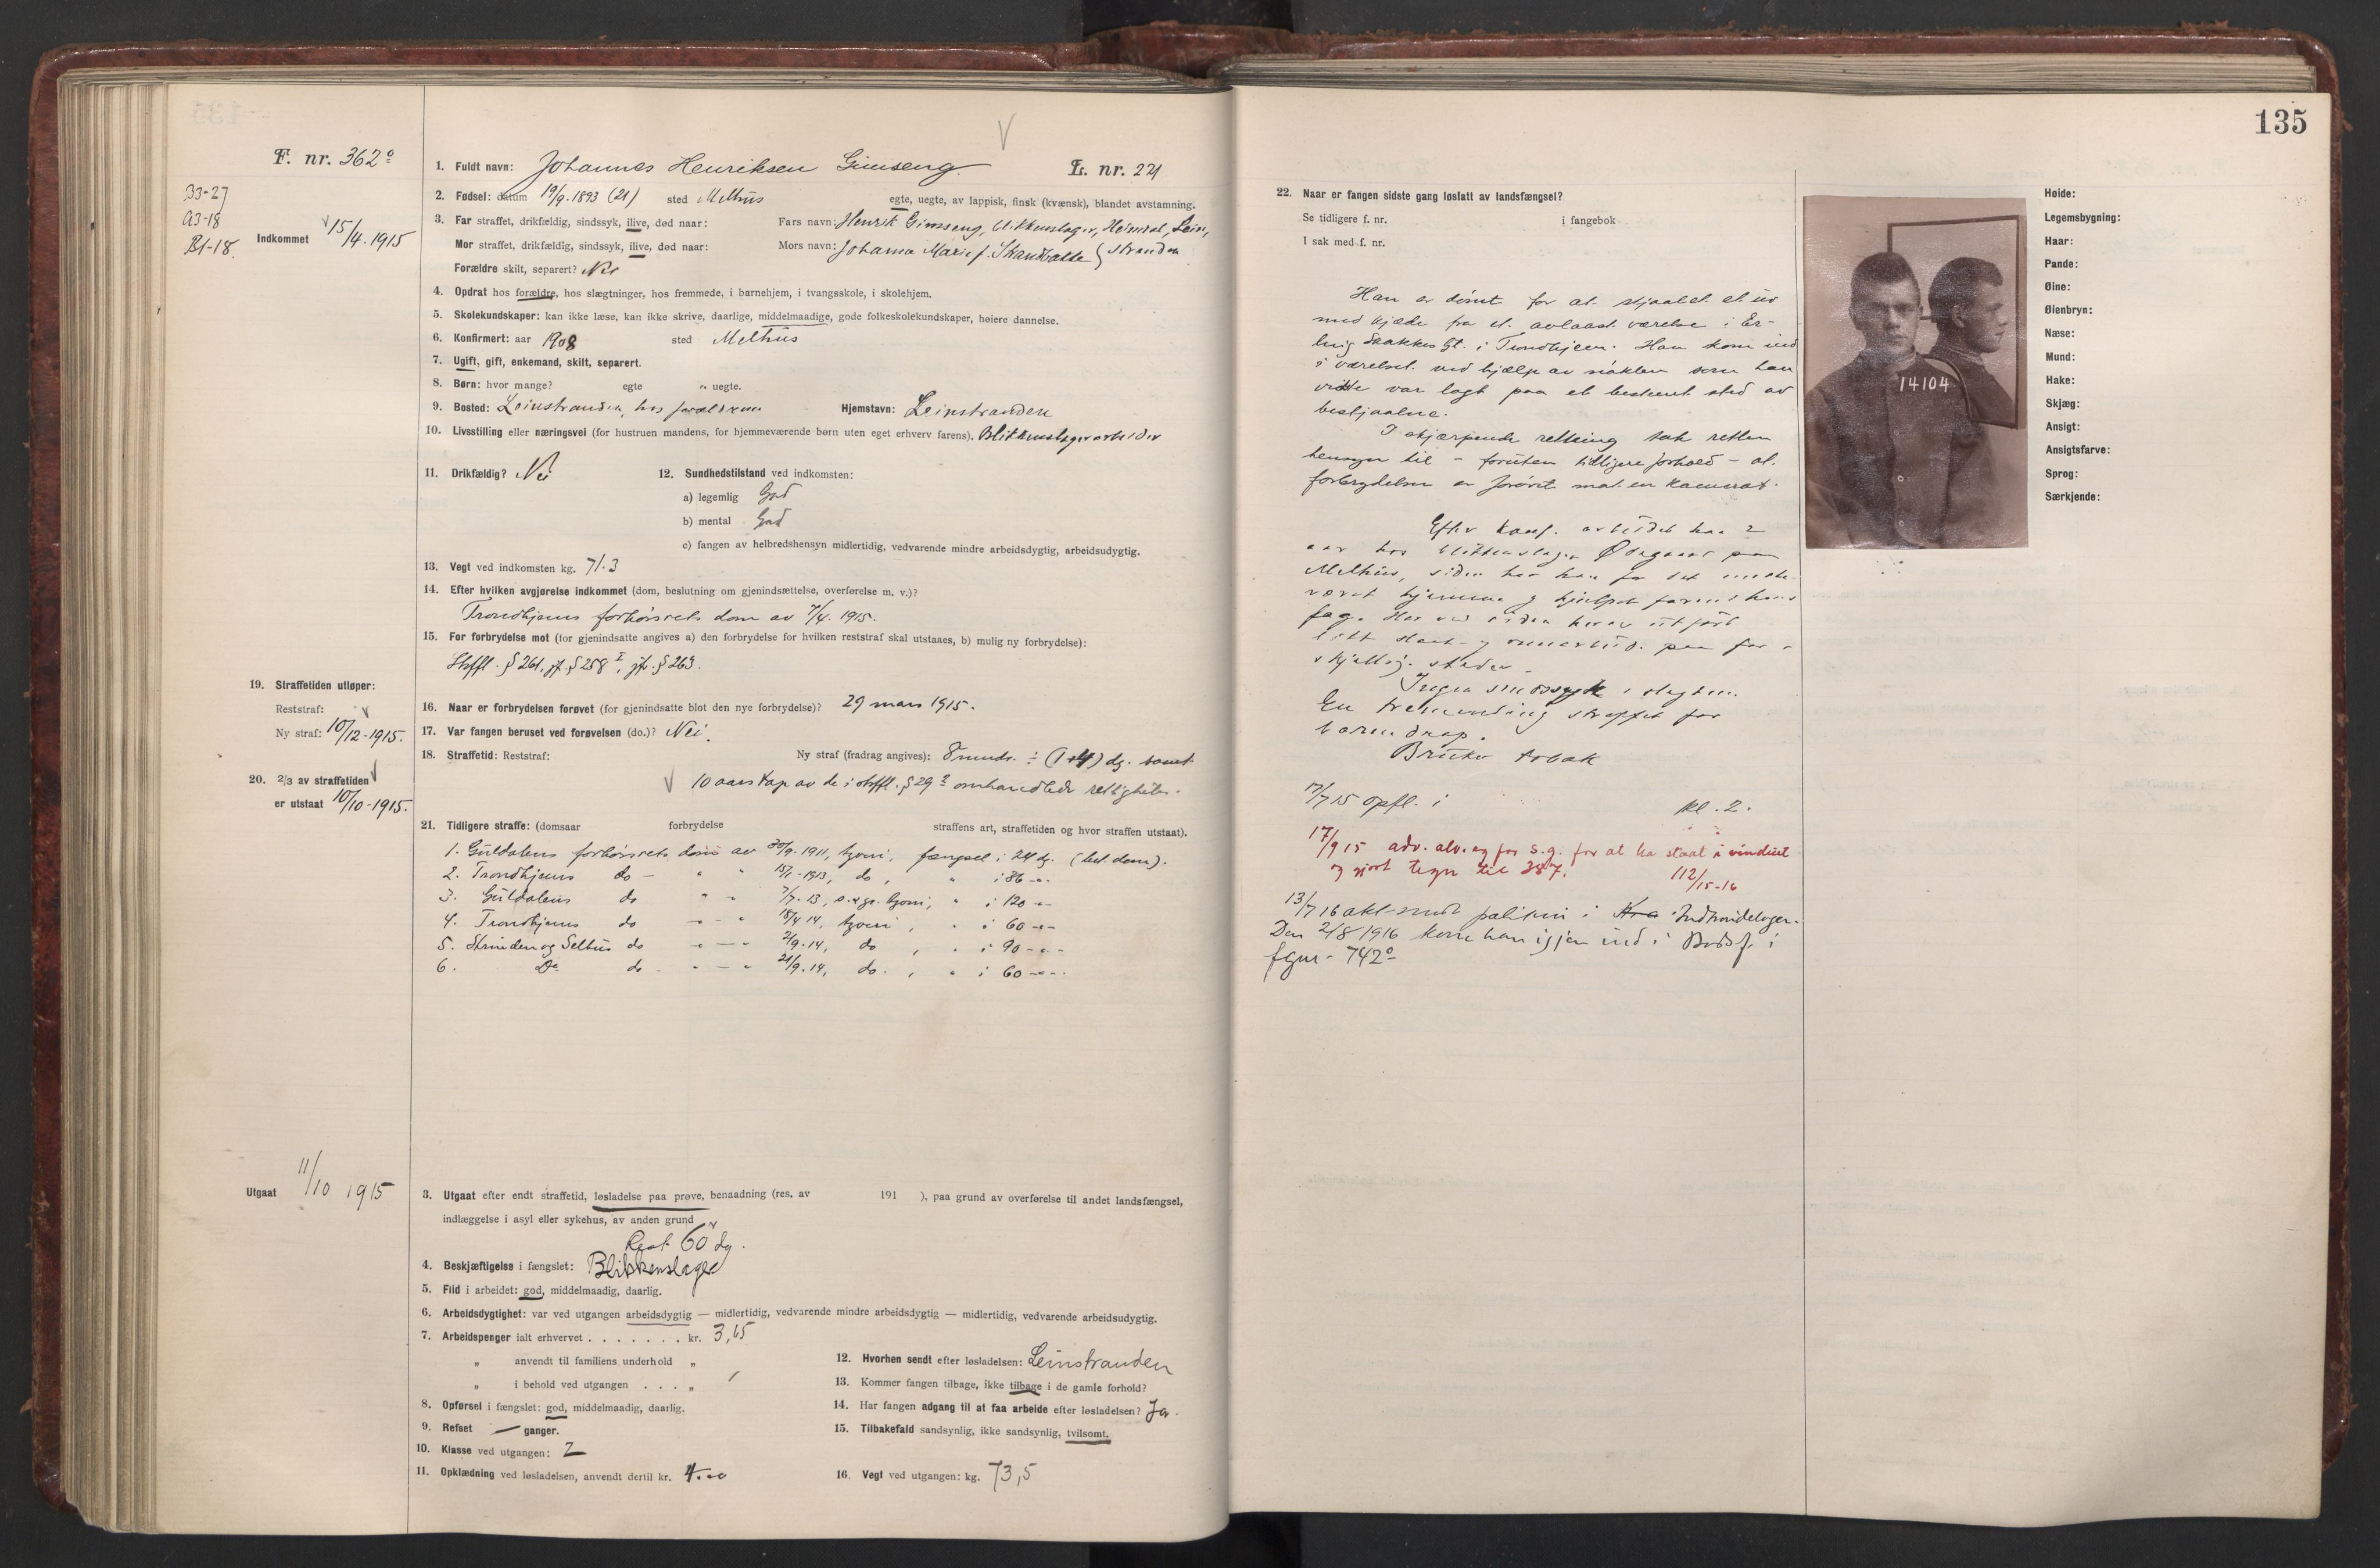 135
F. nr. 362º
33-27
A3-18
B1-18.
Indkommet 15/4. 1915
1. Fuldt navn: Johannes Henriksen Gimseng. L. nr. 221
2. Fødsel: datum 19/9. 1893 (21) sted Melhus egte, uegte, av lappisk, finsk (kvænsk), blandet avstamning.
3. Far straffet, drikfældig, sindssyk, ilive, død naar: Fars navn: Henrik Gimseng, blikkenslager, Heimdal, Lein,
Mor straffet, drikfældig, sindssyk, ilive, død naar: Mors navn: Johanna Marie f. stranden
Forældre skilt, separert? Nei
4. Opdrat hos forældre, hos slægtninger, hos fremmede, i barnehjem, i tvangsskole, i skolehjem.
5. Skolekundskaper: kan ikke læse, kan ikke skrive, daarlige, middelmaadige, gode folkeskolekundskaper, høiere dannelse.
6. Konfirmert: aar 1908 sted Melhus
7. Ugift, gift, enkemand, skilt, separert.
8. Børn: hvor mange? egte „ uegte.
9. Bosted: Leinstranden, hos forældrene Hjemstavn: Leinstranden
10. Livsstilling eller næringsvei (for hustruen mandens, for hjemmeværende børn uten eget erhverv farens). Blikkenslagerarbeider
11. Drikfældig? Nei 12. Sundhedstilstand ved indkomsten:
a) legemlig God
b) mental God
c) fangen av helbredshensyn midlertidig, vedvarende mindre arbeidsdygtig, arbeidsudygtig.
13. Vegt ved indkomsten kg. 71.3
14. Efter hvilken avgjørelse indkommet (dom, beslutning om gjenindsættelse, overførelse m. v.)?
Trondhjems forhørsrets dom av 7/4. 1915.
15. For forbrydelse mot (for gjenindsatte angives a) den forbrydelse for hvilken reststraf skal utstaaes, b) mulig ny forbrydelse):
Strffl. § 261, jf. § 258 I, jfr. § 263.
16. Naar er forbrydelsen forøvet (for gjenindsatte blot den nye forbrydelse)? 29 mars 1915.
17. Var fangen beruset ved forøvelsen (do.)? Nei.
18. Straffetid: Reststraf: Ny straf (fradrag angives): 8 mndr. ÷ (1+4) dg. samt
10 aars tap av de i strffl. § 29 2 omhandlede rettigheter.
19. Straffetiden utløper:
Reststraf:
Ny straf: 10/12-1915.
20. 2/3 av straffetiden
er utstaat 10/10-1915.
21. Tidligere straffe: (domsaar forbrydelse straffens art, straffetiden og hvor straffen utstaat).
1. Guldalens forhørsrets dom av 30/9. 1911, tyveri, fængsel i 24 dg. (bet. dom).
2. Trondhjems do - " " 15/1-1913, do, " i 86 -"-
3. Guldalens do " " 7/7. 13, s. & gr. tyveri, " i 120 -"-
4. Trondhjems do " - " 18/4 14, tyveri, " i 60 -"-
5. Strinden og Selbus do " - " 2/9. 14, do, " i 90 -"-
6. Do do. " - " 21/9. 14, do., " i 60 -"-
Utgaat 11/10 1915
3. Utgaat efter endt straffetid, løsladelse paa prøve, benaadning (res. av 191 ), paa grund av overførelse til andet landsfængsel,
indlæggelse i asyl eller sykehus, av anden grund
Rest 60 dg.
4. Beskjæftigelse i fængslet: Blikkenslager
5. Flid i arbeidet: god, middelmaadig, daarlig.
6. Arbeidsdygtighet: var ved utgangen arbeidsdygtig — midlertidig, vedvarende mindre arbeidsdygtig — midlertidig, vedvarende arbeidsudygtig.
7. Arbeidspenger ialt erhvervet . . . . . . . kr. 3,65
„ anvendt til familiens underhold „
„ i behold ved utgangen . . . „
8. Opførsel i fængslet: god, middelmaadig, daarlig.
9. Refset — ganger.
10. Klasse ved utgangen: 2
11. Opklædning ved løsladelsen, anvendt dertil kr. 4.00
12. Hvorhen sendt efter løsladelsen: Leinstranden
13. Kommer fangen tilbage, ikke tilbage i de gamle forhold?
14. Har fangen adgang til at faa arbeide efter løsladelsen? Ja.
15. Tilbakefald sandsynlig, ikke sandsynlig, tvilsomt.
16. Vegt ved utgangen: kg. 73,5
22. Naar er fangen sidste gang løslatt av landsfængsel?
Se tidligere f. nr. i fangebok
I sak med f. nr.
Han er dømt for at stjaalet et ur
med kjæde fra et avlaast værelse i Er-
ling Skakkes gt. i Trondhjem. Han kom ind
i værelset ved hjælp av nøklen som han
visste var lagt paa et bestemt sted av
bestjaalne.
I skjærpende retning tok retten
hensyn til - foruten tidligere forhold - at
forbrydelsen er forøvet mot en kamerat.
Efter konf. arbeidet han 2
aar hos blikkenslager Ødegaard paa
Melhus, siden har han for det meste
været hjemme og hjulpet faren i hans
fag. Har ved siden herav utført
litt og paa for-
skjellig. steder.
Ingen sindssyk i slegten.
En tremending straffet for
barnedrap.
Bruker tobak
17/7 15 opfl. i kl. 2.
17/9 15 adv. alv. og for s.g. for at ha staat i vinduet
og gjort tegn til 387. 112/15-16
13/7 16 akt sendt politiet i Kra Indtrøndelagen.
Den 2/8 1916 kom han igjen ind i Bodsf. i
fgnr. 742º
14104
Høide:
Legemsbygning:
Haar:
Pande:
Øine:
Øienbryn:
Næse:
Mund:
Hake:
Skjæg:
Ansigt:
Ansigtsfarve:
Sprog:
Særkjende: